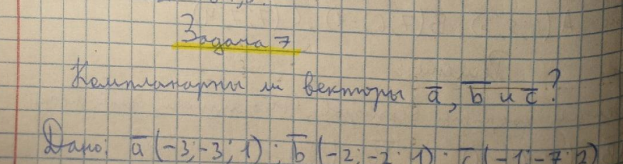 Задача 7
Компланарны ли векторы a̅, b̅ и c̅?
Дано: a̅ (-3; -3; 1); b̅ (-2; -2; 1); c̅ (-1; -7; 2)